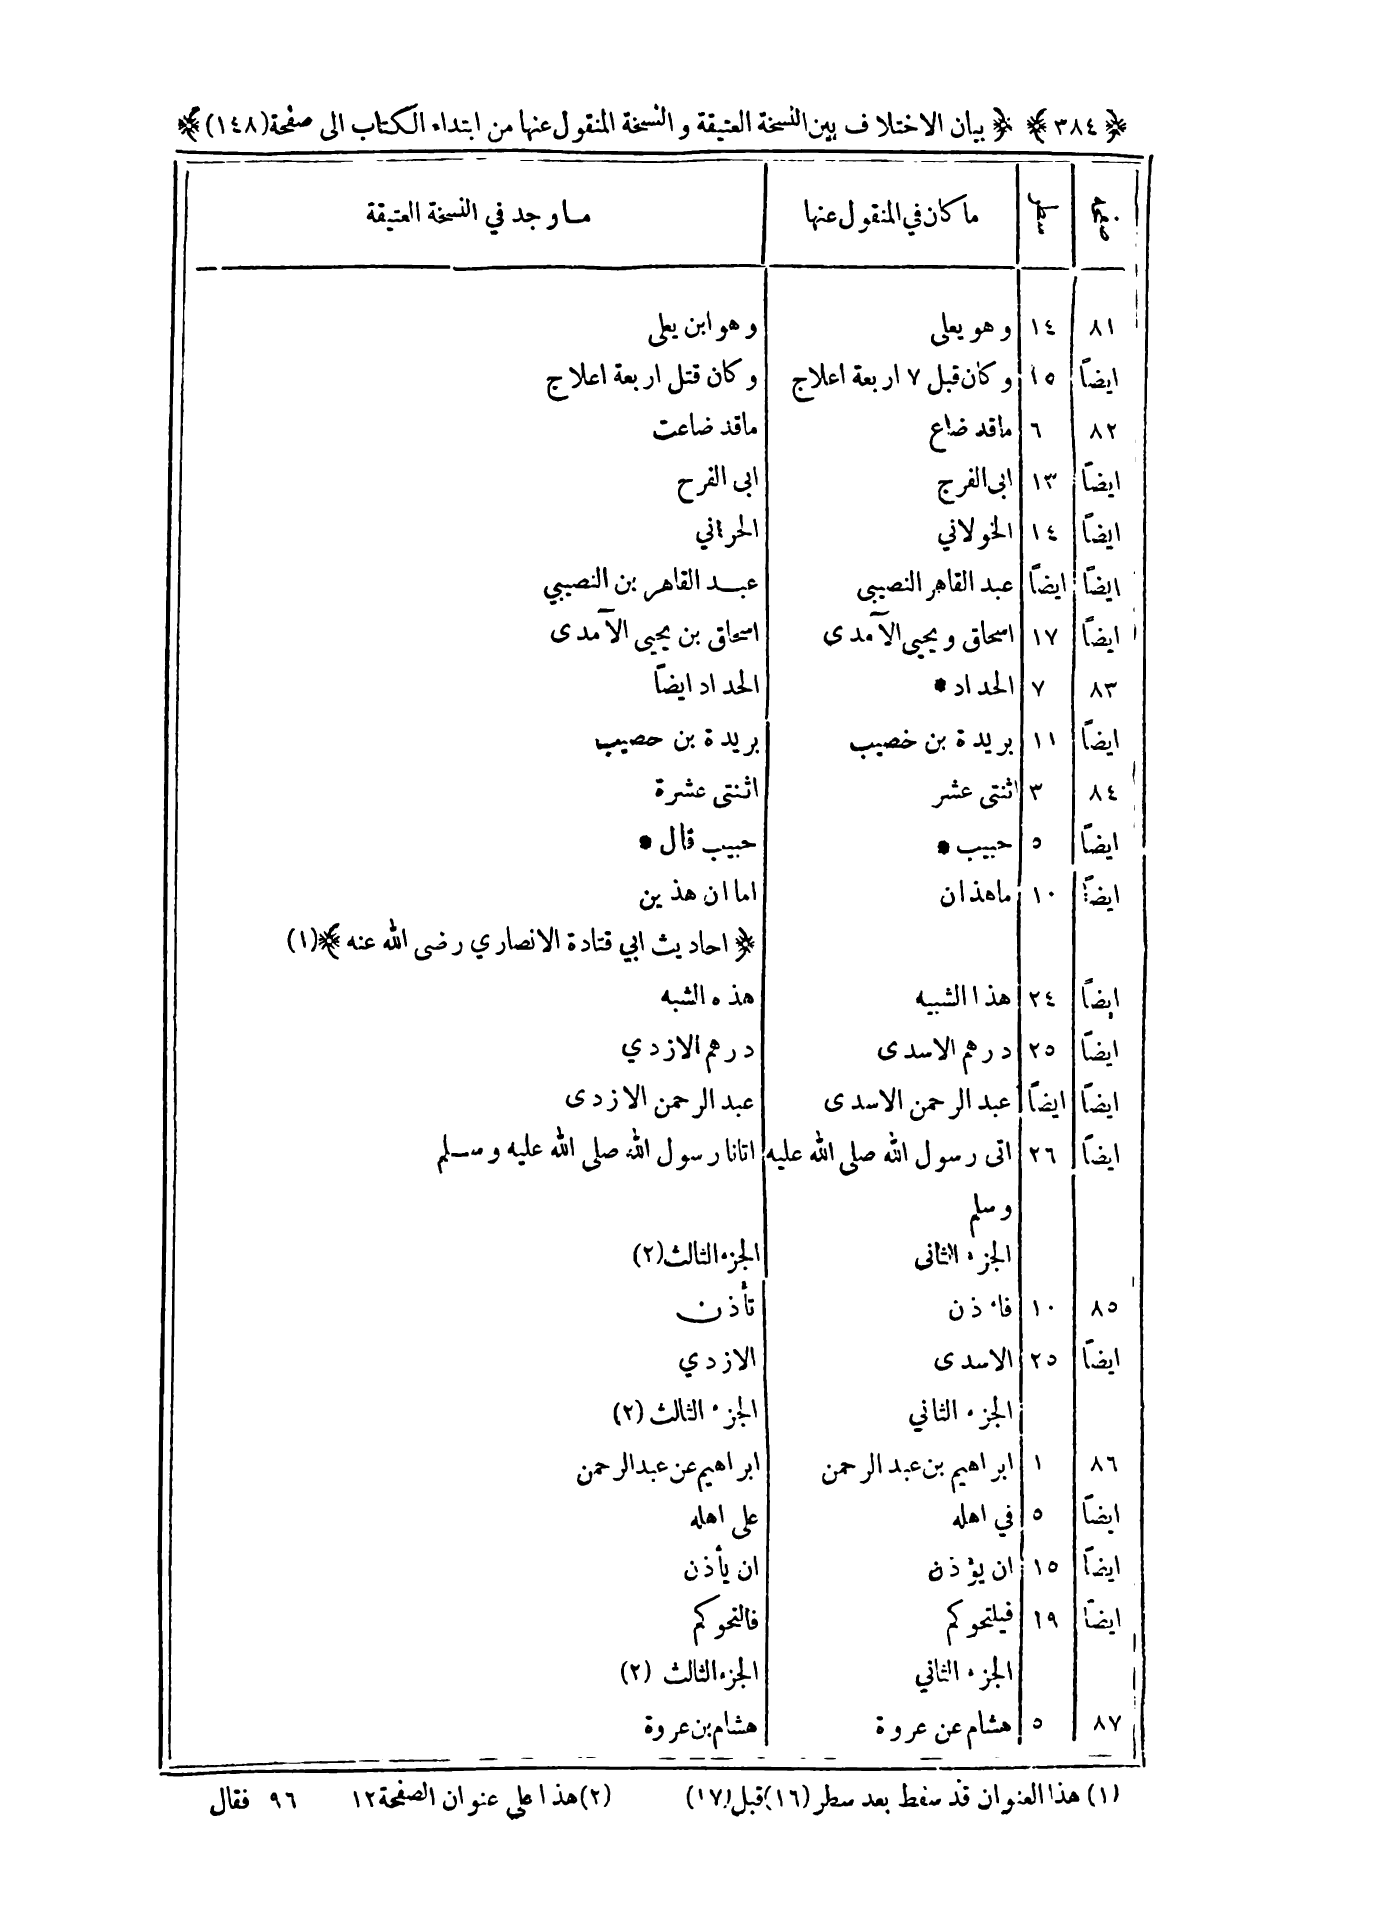 ﴿ ٣٨٤ ﴾ ﴿ بيان الاختلاف بين النسخة العتيقة و النسخة المنقول عنها من ابتداء الكتاب الى صفحة (١٤٨) ﴾
صفحه سطر ما كان في المنقول عنها ما وجد في النسخة العتيقة
٨١ ١٤ و هو يعلى و هو ابن يعلى
ايضاً ١٥ و كان قبل ٧ اربعة اعلاج و كان قتل اربعة اعلاج
٨٢ ٦ ما قد ضاع ما قد ضاعت
ايضاً ١٣ ابى الفرج ابى الفرح
ايضاً ١٤ الخولاني الحراني
ايضاً ايضاً عبد القاهر النصيبى عبد القاهر بن النصيبي
ايضاً ١٧ اسحاق و يحيى الآمدى اسحاق بن يحيى الآمدى
٨٣ ٧ الحداد * الحداد ايضاً
ايضاً ١١ بريدة بن خصيب بريدة بن حصيب
٨٤ ٣ اثنتى عشر اثنتى عشرة
ايضاً ٥ حبيب * حبيب قال *
ايضاً ١٠ ما هذان اما ان هذين
﴿ احاديث ابي قتادة الانصاري رضى الله عنه ﴾ (١)
ايضاً ٢٤ هذا الشبيه هذه الشبه
ايضاً ٢٥ درهم الاسدى درهم الازدي
ايضاً ايضاً عبد الرحمن الاسدى عبد الرحمن الازدى
ايضاً ٢٦ اتى رسول الله صلى الله عليه اتانا رسول الله صلى الله عليه و سلم
و سلم
الجزء الثانى الجزء الثالث (٢)
٨٥ ١٠ فاءذن تأذن
ايضاً ٢٥ الاسدى الازدي
الجزء الثاني الجزء الثالث (٢)
٨٦ ١ ابراهيم بن عبد الرحمن ابراهيم عن عبد الرحمن
ايضاً ٥ في اهله على اهله
ايضاً ١٥ ان يؤذن ان يأذن
ايضاً ١٩ فيلتحوكم فالتحوكم
الجزء الثاني الجزء الثالث (٢)
٨٧ ٥ هشام عن عروة هشام بن عروة
(١) هذا العنوان قد سقط بعد سطر (١٦) قبل (١٧) (٢) هذا على عنوان الصفحة ١٢ ٩٦ فقال